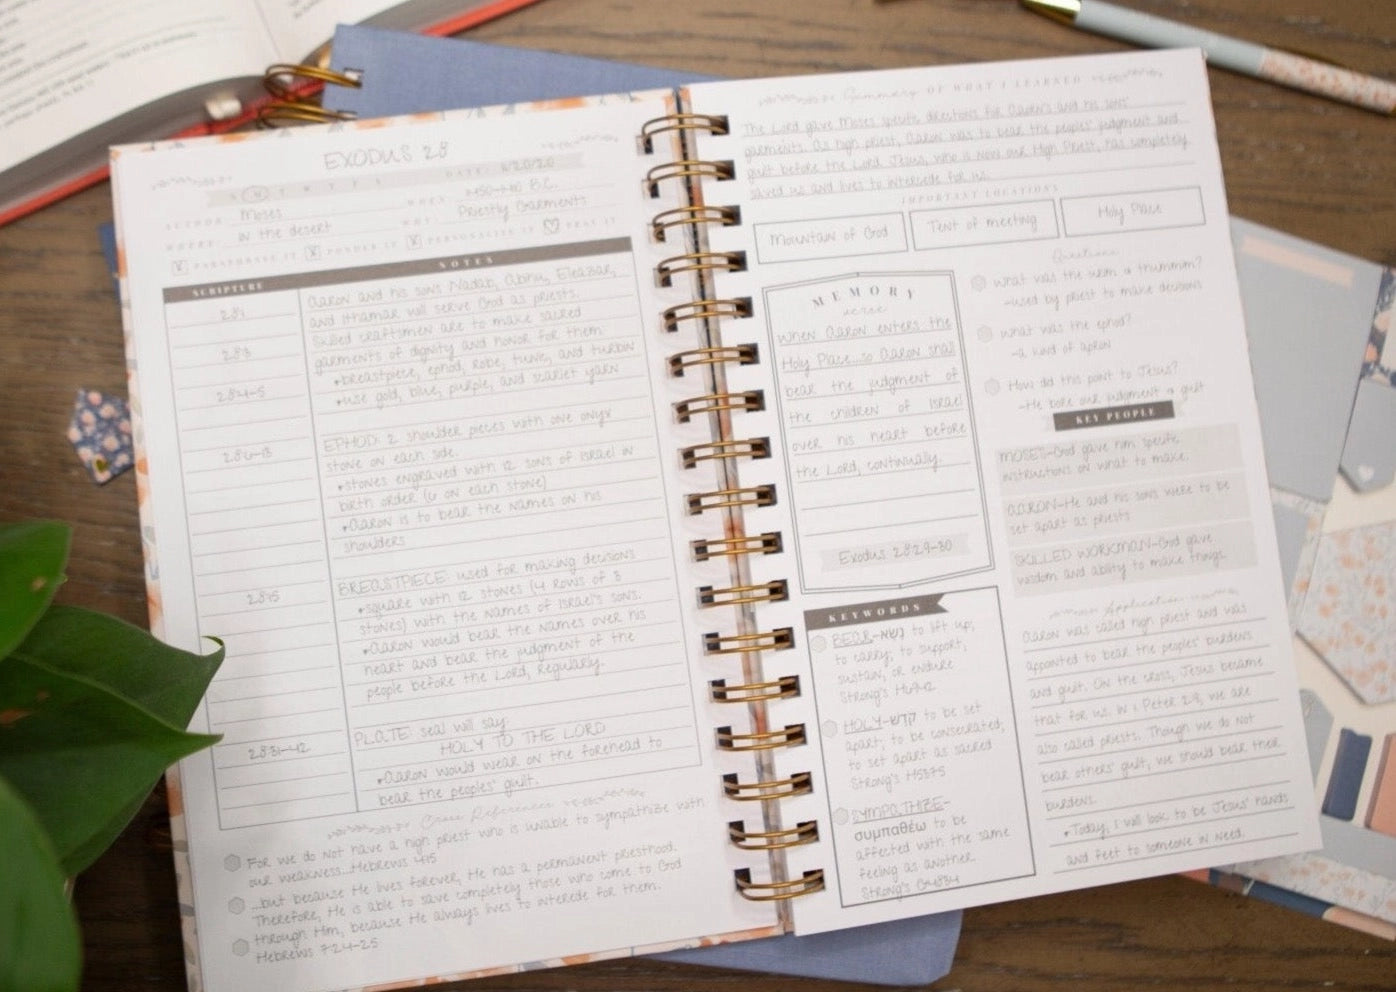 EXODUS 28
S M T W T F S
DATE: 6/20/20
AUTHOR: Moses
WHEN: 1450-1410 B.C.
WHERE: in the desert
WHY: Priestly Garments
PARAPHRASE IT X PONDER IT X PERSONALIZE IT PRAY IT
SCRIPTURE NOTES
28:1 Aaron and his sons Nadab, Abihu, Eleazar,
and Ithamar will serve God as priests.
28:3 Skilled craftsmen are to make sacred
garments of dignity and honor for them:
28:4-5 •breastpiece, ephod, robe, tunic, and turbin
•use gold, blue, purple, and scarlet yarn
28:6-13 EPHOD: 2 shoulder pieces with one onyx
stone on each side.
•stones engraved with 12 sons of Israel in
birth order (6 on each stone)
•Aaron is to bear the names on his
shoulders
28:15 BREASTPIECE: used for making decisions
•square with 12 stones (4 rows of 3
stones) with the names of Israel's sons.
•Aaron would bear the names over his
heart and bear the judgment of the
people before the Lord, regularly.
28:31-42 PLATE: seal will say
HOLY TO THE LORD
•Aaron would wear on the forehead to
bear the peoples' guilt.
Cross References
For we do not have a high priest who is unable to sympathize with
our weakness...Hebrews 4:15
...but because He lives forever, He has a permanent priesthood.
Therefore, He is able to save completely those who come to God
through Him, because He always lives to interede for them.
Hebrews 7:24-25
Summary OF WHAT I LEARNED
The Lord gave Moses specific directions for Aaron's and his sons'
garments. As high priest, Aaron was to bear the peoples' judgment and
guilt before the Lord. Jesus, who is now our High Priest, has completely
saved us and lives to intercede for us.
IMPORTANT LOCATIONS
Mountain of God
Tent of meeting
Holy Place
MEMORY
verse
When Aaron enters the
Holy Place...so Aaron shall
bear the judgment of
the children of Israel
over his heart before
the Lord, continually.
Exodus 28:29-30
Questions
What was the urim & thummim?
-used by priest to make decisions
What was the ephod?
-a kind of apron
How did this point to Jesus?
-He bore our judgment & guilt
KEY PEOPLE
MOSES-God gave him specific
instructions on what to make.
AARON-He and his sons were to be
set apart as priests
SKILLED WORKMAN-God gave
wisdom and ability to make things.
KEYWORDS
BEAR-נשא to lift up,
to carry, to support,
sustain, or endure
Strong's
HOLY-קדש to be set
apart, to be consecrated,
to set apart as sacred
Strong's
SYMPATHIZE-
συμπαθέω to be
affected with the same
feeling as another.
Strong's G4834
Application
Aaron was called high priest and was
appointed to bear the peoples' burdens
and guilt. On the cross, Jesus became
that for us. In 1 Peter 2:9, we are
also called priests. Though we do not
bear others' guilt, we should bear their
burdens.
•Today, I will look to be Jesus' hands
and feet to someone in need.